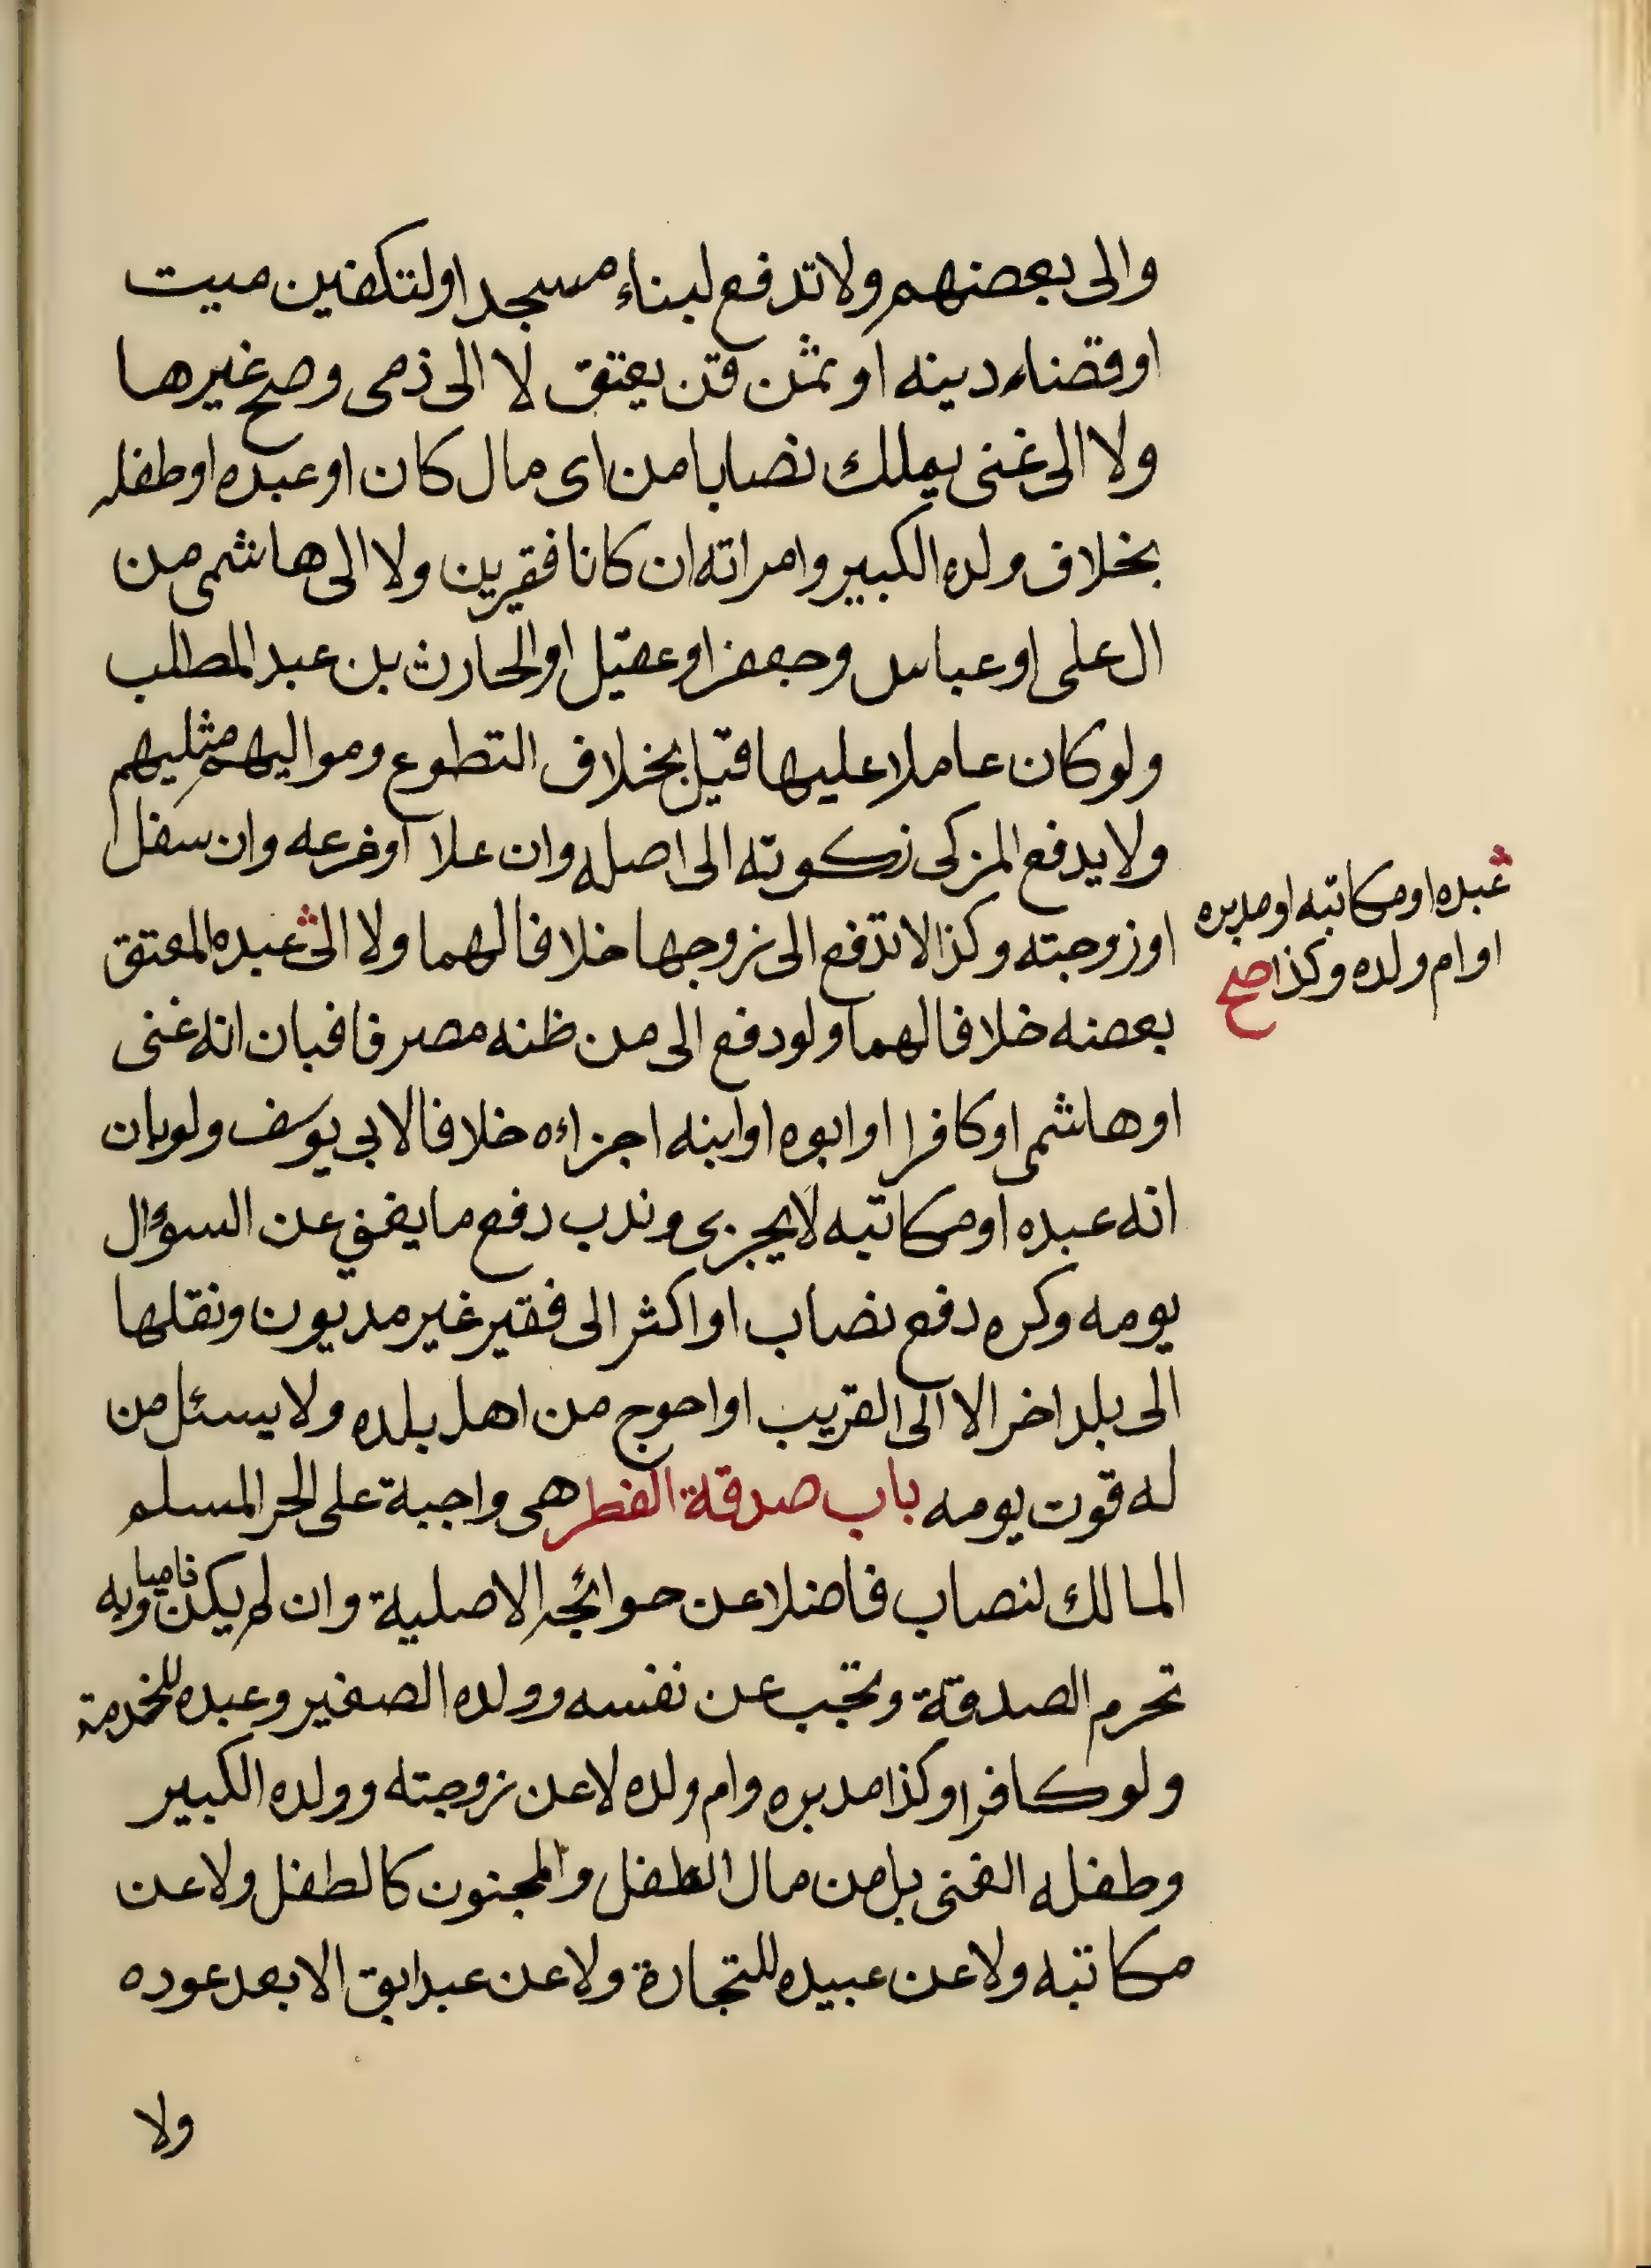 والى بعضهم ولا تدفع لبناء مسجد او لتكفين ميت
او قضاء دينه او ثمن قن يعتق لا الى ذمى وصح غيرها
ولا الى غنى يملك نصابا من اى مال كان او عبده او طفله
بخلاف ولده الكبير وامراته ان كانا فقيرين ولا الى هاشمى من
ال على او عباس وجعفر او عقيل او الحارث بن عبد المطلب
ولو كان عاملا عليها قيل بخلاف التطوع ومواليهم مثليهم
ولا يدفع المزكى زكوته الى اصله وان علا او فرعه وان سفل
او زوجته وكذا لا تدفع الى زوجها خلافا لهما ولا الى عبده المعتق
بعضه خلافا لهما ولو دفع الى من ظنه مصرفا فبان انه غنى
او هاشمى او كافرا او ابوه او ابنه اجزاءه خلافا لابى يوسف ولو بان
انه عبده او مكاتبه لا يجزى وندب دفع ما يغنى عن السؤال
يومه وكره دفع نصاب او اكثر الى فقير غير مديون ونقلها
الى بلد اخر الا الى القريب او احوج من اهل بلده ولا يسئل من
له قوت يومه باب صدقة الفطر هى واجبة على الحر المسلم
المالك لنصاب فاضلا عن حوائجه الاصلية وان لم يكن ناميا وبه
تحرم الصدقة وتجب عن نفسه وولده الصغير وعبده للخدمة
ولو كافرا وكذا مدبره وام ولده لا عن زوجته وولده الكبير
وطفله الغنى بل من مال الطفل والمجنون كالطفل ولا عن
مكاتبه ولا عن عبيده للتجارة ولا عن عبد ابق الا بعد عوده
ولا
عبده او مكاتبه او مدبره
او ام ولده وكذا صح